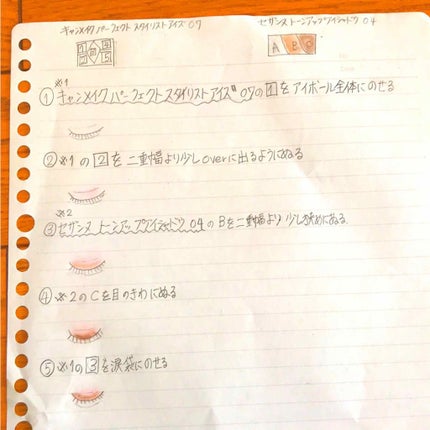 キャンメイク パーフェクト スタイリスト アイズ 07
セザンヌ トーンアップアイシャドウ 04
1 2 3 4 5
A B C
※1
① キャンメイク パーフェクト スタイリスト アイズ 07の1をアイホール全体にのせる
② ※1の2を二重幅より少しoverに出るようにぬる
※2
③ セザンヌ トーンアップアイシャドウ 04のBを二重幅より少し狭めにぬる
④ ※2のCを目のきわにぬる
⑤ ※1の3を涙袋にのせる